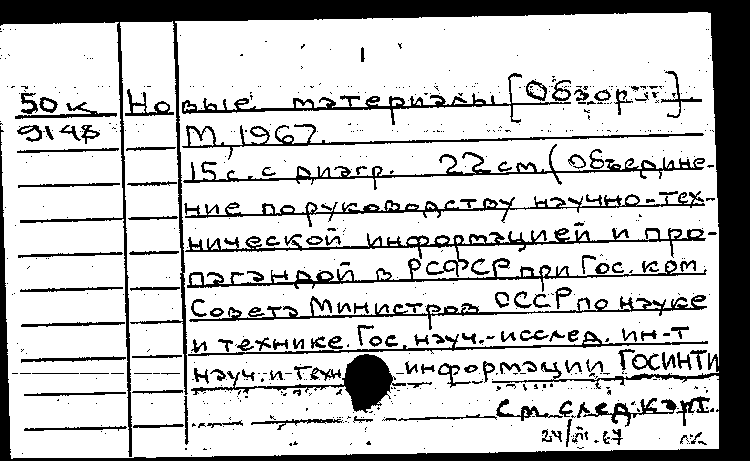 50к Новые материалы [Обзор].
9148 М., 1967.
15 с. с диагр. 22 см. (Объедине-
ние по руководству научно-тех-
нической информацией и про-
пагандой в РСФСР при Гос. ком.
Совета Министров СССР по науке
и технике. Гос. науч.-исслед. ин-т
науч. и техн. информации ГОСИНТИ
См. след. карт.
24/VII.67